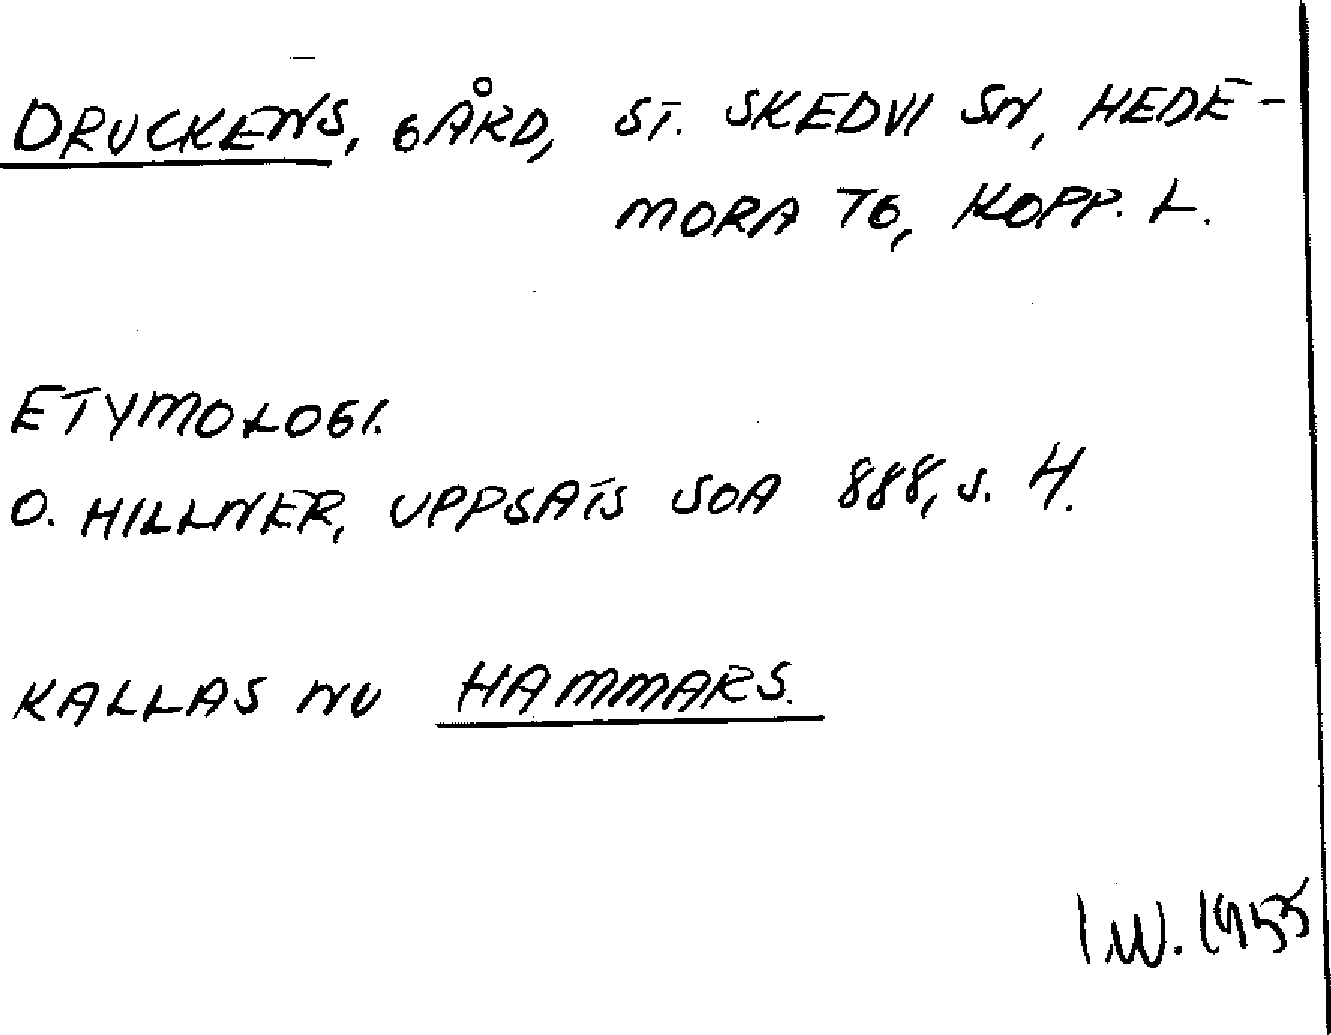 DRUCKENS, GÅRD, ST. SKEDVI SN, HEDE-
MORA TG, KOPP. L.
ETYMOLOGI.
O. HILLNER, UPPSATS SOA 888, s. 4.
KALLAS NU HAMMARS.
I.W. 1955